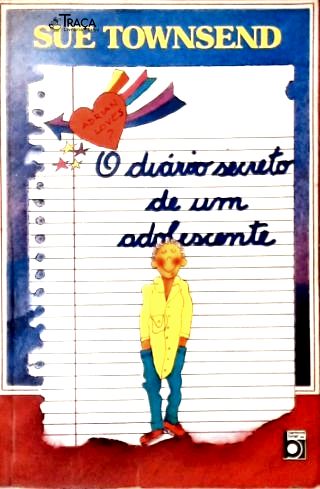 TRAÇA
SUE TOWNSEND
ADRIAN
LOVES
?
O diário secreto
de um
adolescente